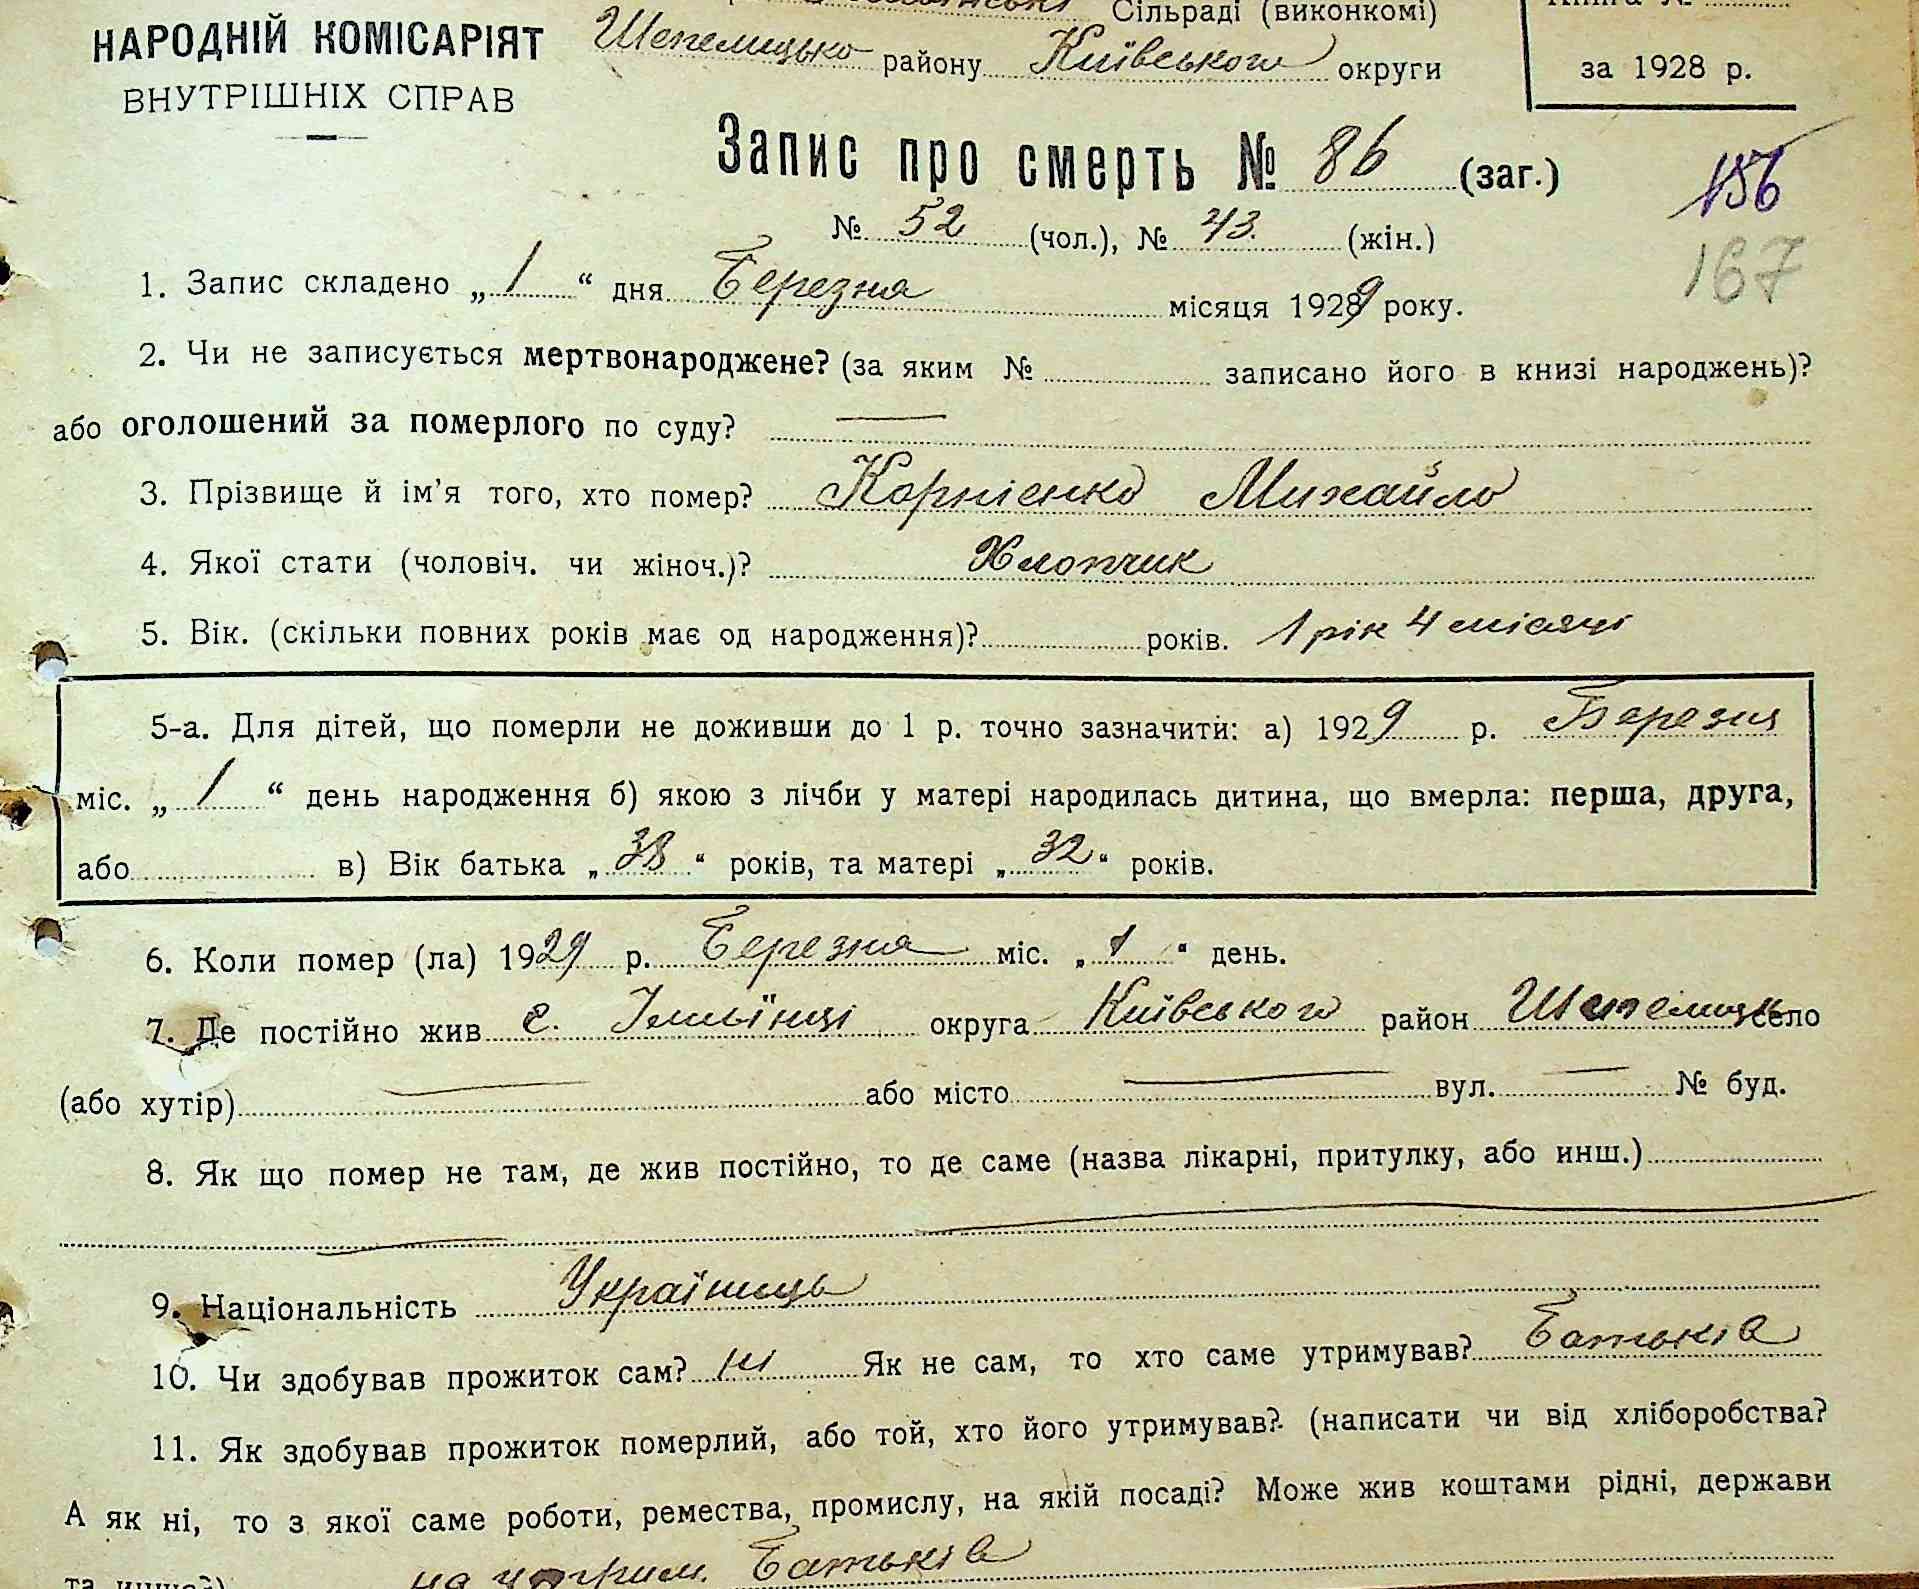 Сільраді (виконкомі)
НАРОДНІЙ КОМІСАРІЯТ
ВНУТРІШНІХ СПРАВ
Шепелицько району Київського округи
за 1928 р.
Запис про смерть № 86 (заг.)
156
№ 52 (чол.), № 43. (жін.)
167
1. Запис складено „ 1 “ дня Березня місяця 1929 року.
2. Чи не записується мертвонароджене? (за яким № записано його в книзі народжень)?
або оголошений за померлого по суду? —
3. Прізвище й ім'я того, хто помер? Корнієнко Михайло
4. Якої стати (чоловіч. чи жіноч.)? Хлопчик
5. Вік. (скільки повних років має од народження)? років. 1 рік 4 місяці
5-а. Для дітей, що померли не доживши до 1 р. точно зазначити: а) 1929 р. Березня
міс. „ 1 “ день народження б) якою з лічби у матері народилась дитина, що вмерла: перша, друга,
або в) Вік батька „ 38 “ років, та матері „ 32 “ років.
6. Коли помер (ла) 1929 р. Березня міс. „ 1 “ день.
7. Де постійно жив с. Ілльїнці округа Київського район Шепелицьк село
(або хутір) — або місто — вул. — № буд.
8. Як що помер не там, де жив постійно, то де саме (назва лікарні, притулку, або инш.)
9. Національність Українець
10. Чи здобував прожиток сам? ні Як не сам, то хто саме утримував? Батьків
11. Як здобував прожиток померлий, або той, хто його утримував? (написати чи від хліборобства?
А як ні, то з якої саме роботи, ремества, промислу, на якій посаді? Може жив коштами рідні, держави
на утрим. Батьків